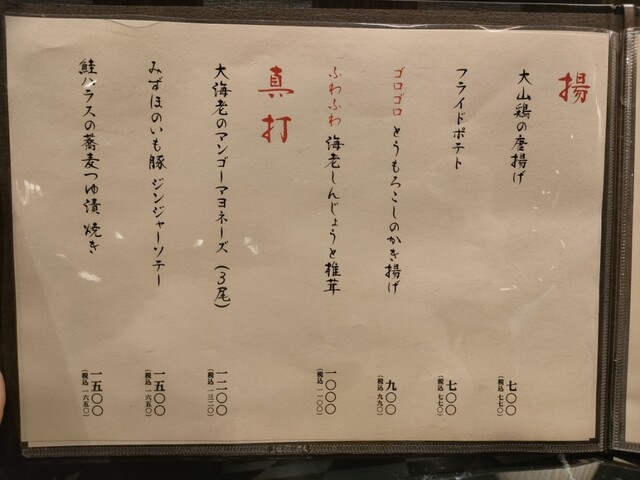 揚
大山鶏の唐揚げ
七〇〇
(税込 七七〇)
フライドポテト
七〇〇
(税込 七七〇)
ゴロゴロとうもろこしのかき揚げ
九〇〇
(税込 九九〇)
ふわふわ海老しんじょうと椎茸
一〇〇〇
(税込 一一〇〇)
真打
大海老のマンゴーマヨネーズ(3尾)
一二〇〇
(税込 一三二〇)
みずほのいも豚ジンジャーソテー
一五〇〇
(税込 一六五〇)
鮭ハラスの蕎麦つゆ漬焼き
一五〇〇
(税込 一六五〇)